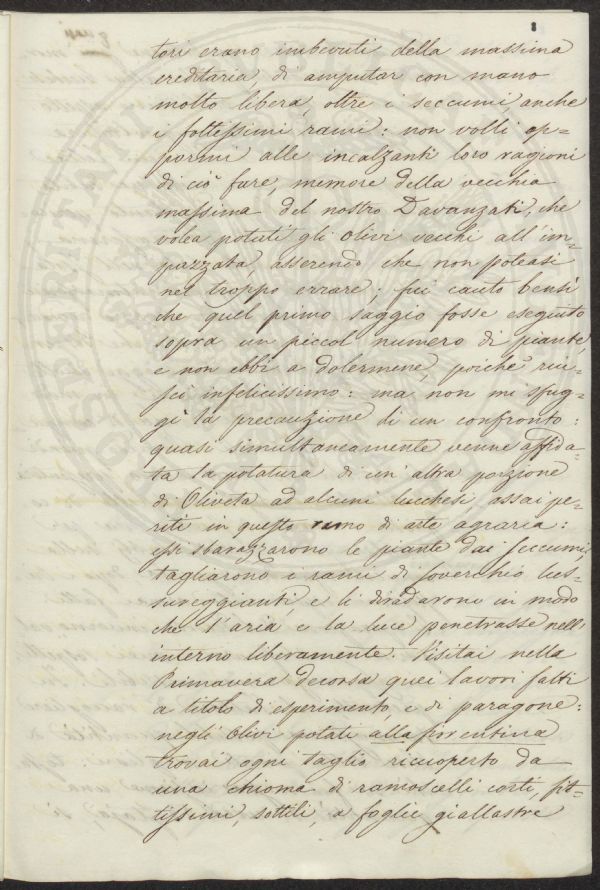 8
tori erano imbevuti della massima
ereditaria di amputar con mano
molto libera, oltre i seccumi, anche
i foltissimi rami: non volli op-
pormi alle incalzanti loro ragioni
di ciò fare, memore della vecchia
massima del nostro Davanzati, che
volea potati gli Olivi vecchi all'im-
pazzata, asserendo che non poteasi
nel troppo errare; fui cauto bensì
che quel primo saggio fosse eseguito
sopra un piccol numero di piante,
e non ebbi a dolermene, poichè riu-
scì infelicissimo: ma non mi sfug-
gì la precauzione di un confronto:
quasi simultaneamente venne affida-
ta la potatura di un'altra porzione
di Oliveta ad alcuni lucchesi assai pe-
riti in questo ramo di arte agraria:
essi sbarazzarono le piante dai seccumi,
tagliarono i rami di soverchio lus-
sureggianti e li diradarono in modo
che l'aria e la luce penetrasse nell'
interno liberamente. Visitai nella
Primavera decorsa quei lavori fatti
a titolo di esperimento, e di paragone:
negli Olivi potati alla fiorentina
trovai ogni taglio ricuoperto da
una chioma di ramoscelli corti, fit-
tissimi, sottili, a foglie giallastre